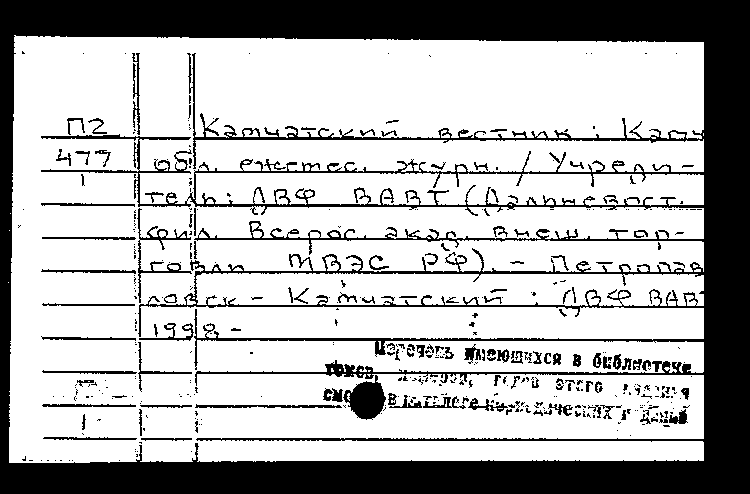 П2 Камчатский вестник : Камч
477 обл. ежемес. журн. / Учреди-
1
тель: ДВФ ВАВТ (Дальневост.
фил. Всерос. акад. внеш. тор-
говли МВЭС РФ). - Петропав
ловск - Камчатский : ДВФ ВАВТ
1998 -
Перечень имеющихся в библиотеке
томов, номеров, годов этого издания
см в каталоге периодических и
П -
1